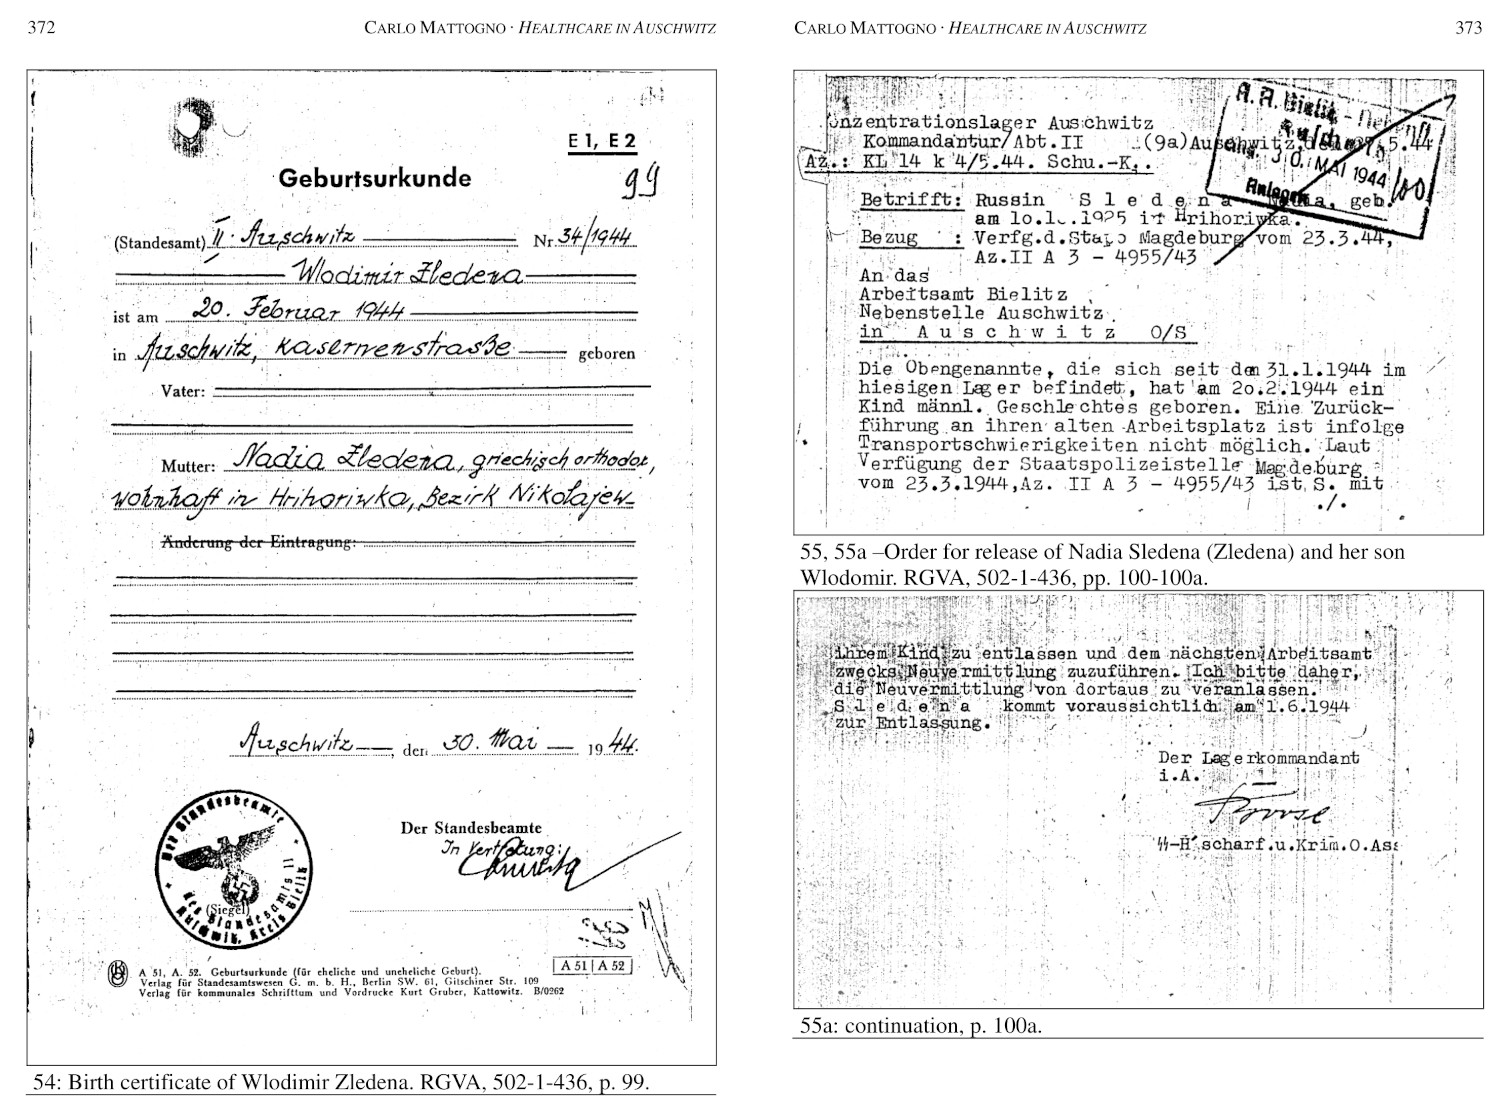 372
CARLO MATTOGNO · HEALTHCARE IN AUSCHWITZ
E 1, E 2
Geburtsurkunde
99
(Standesamt) II · Auschwitz Nr 34/1944
Wlodimir Zledena
ist am 20. Februar 1944
in Auschwitz, Kasernenstraße geboren
Vater:
Mutter: Nadia Zledena, griechisch orthodox,
wohnhaft in Hrihoriwka, Bezirk Nikolajew
Änderung der Eintragung:
Auschwitz, den 30. Mai 1944.
Der Standesbeamte
In Vertretung:
Der Standesbeamte
des Standesamts II
Auschwitz, Kreis Bielitz
(Siegel)
A 51 | A 52
A 51, A. 52. Geburtsurkunde (für eheliche und uneheliche Geburt).
Verlag für Standesamtswesen G. m. b. H., Berlin SW. 61, Gitschiner Str. 109
Verlag für kommunales Schrifttum und Vordrucke Kurt Gruber, Kattowitz. B/0262
54: Birth certificate of Wlodimir Zledena. RGVA, 502-1-436, p. 99.
CARLO MATTOGNO · HEALTHCARE IN AUSCHWITZ
373
A.A. Bielitz
30. MAI 1944
Anlagen
100
onzentrationslager Auschwitz
Kommandantur/Abt.II (9a)Auschwitz, 5.44
Az.: KL 14 k 4/5.44. Schu.-K.
Betrifft: Russin S l e d e n a Nadia, geb.
am 10.1 .1925 in Hrihoriwka.
Bezug : Verfg.d.Stapo Magdeburg vom 23.3.44,
Az.II A 3 - 4955/43
An das
Arbeitsamt Bielitz
Nebenstelle Auschwitz
in A u s c h w i t z O/S
Die Obengenannte, die sich seit dem 31.1.1944 im
hiesigen Lager befindet, hat am 20.2.1944 ein
Kind männl. Geschlechtes geboren. Eine Zurück-
führung an ihren alten Arbeitsplatz ist infolge
Transportschwierigkeiten nicht möglich. Laut
Verfügung der Staatspolizeistelle Magdeburg
vom 23.3.1944,Az. II A 3 - 4955/43 ist S. mit
./.
55, 55a –Order for release of Nadia Sledena (Zledena) and her son
Wlodomir. RGVA, 502-1-436, pp. 100-100a.
ihrem Kind zu entlassen und dem nächsten Arbeitsamt
zwecks Neuvermittlung zuzuführen. Ich bitte daher,
die Neuvermittlung von dortaus zu veranlassen.
S l e d e n a kommt voraussichtlich am 1.6.1944
zur Entlassung.
Der Lagerkommandant
i.A.
SS-H'scharf.u.Krim.O.Ass
55a: continuation, p. 100a.